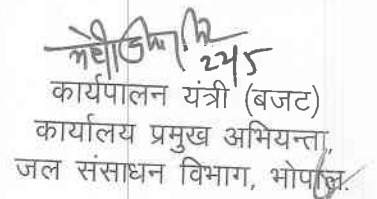 22/5
कार्यपालन यंत्री (बजट)
कार्यालय प्रमुख अभियन्ता,
जल संसाधन विभाग, भोपाल.